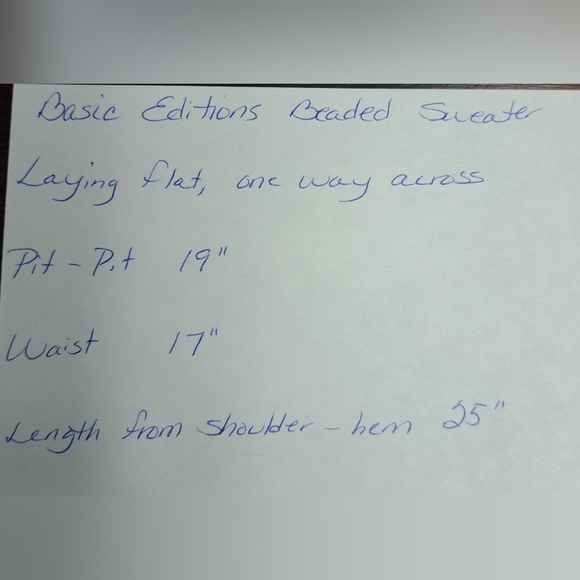 Basic Editions Beaded Sweater
Laying flat, one way across
Pit - Pit 19"
Waist 17"
Length from shoulder - hem 25"